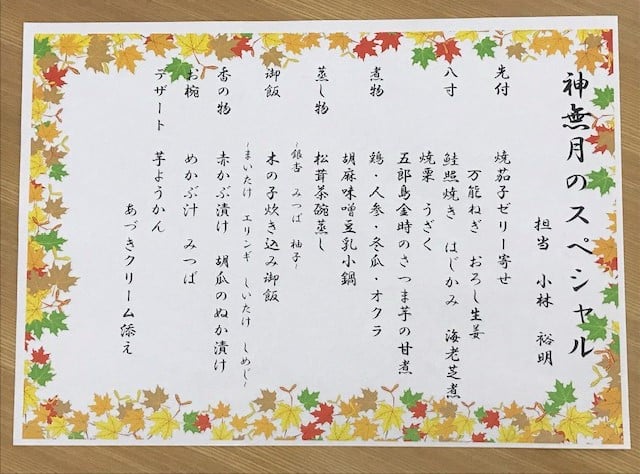 神無月のスペシャル
担当　小林　裕明
先付　焼茄子ゼリー寄せ
万能ねぎ　おろし生姜
八寸　鮭照焼き　はじかみ　海老芝煮
焼栗　うざく
五郎島金時のさつま芋の甘煮
煮物　鶏・人参・冬瓜・オクラ
胡麻味噌豆乳小鍋
蒸し物　松茸茶碗蒸し
~銀杏　みつば　柚子~
御飯　木の子炊き込み御飯
~まいたけ　エリンギ　しいたけ　しめじ~
香の物　赤かぶ漬け　胡瓜のぬか漬け
お椀　めかぶ汁　みつば
デザート　芋ようかん
あづきクリーム添え